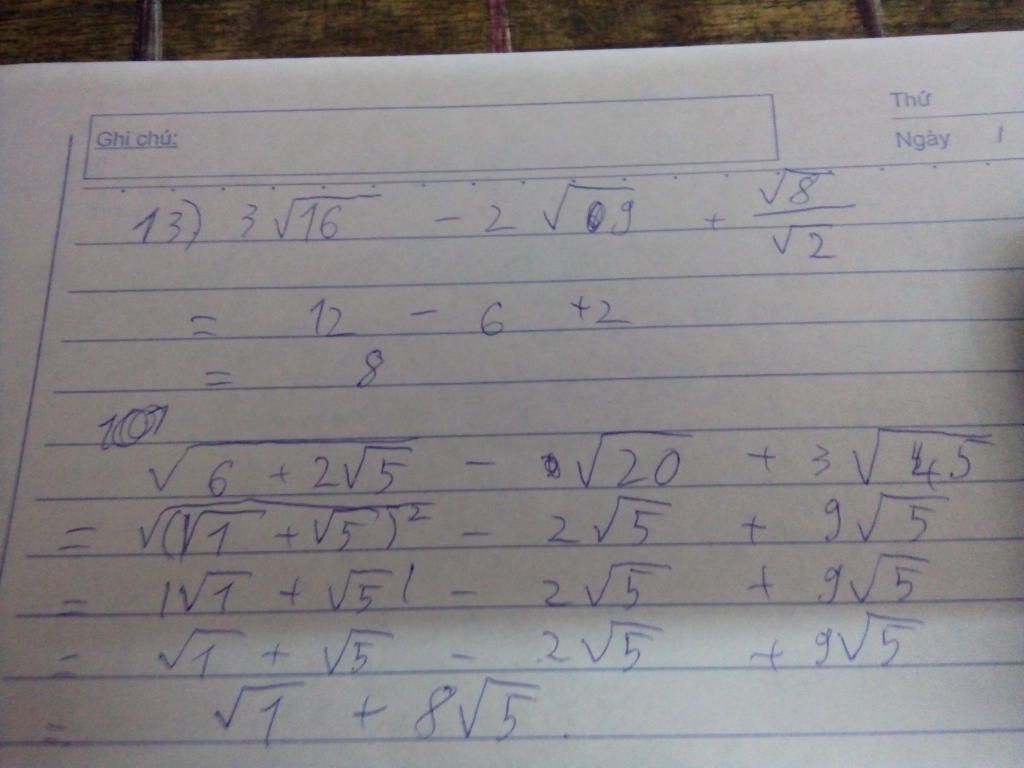 Thứ
Ghi chú:
Ngày 1
13) 3√16 - 2√9 + √8/√2
= 12 - 6 + 2
= 8
√(6 + 2√5) - √20 + 3√45
= √((√1 + √5)²) - 2√5 + 9√5
= |√1 + √5| - 2√5 + 9√5
= √1 + √5 - 2√5 + 9√5
= √1 + 8√5.